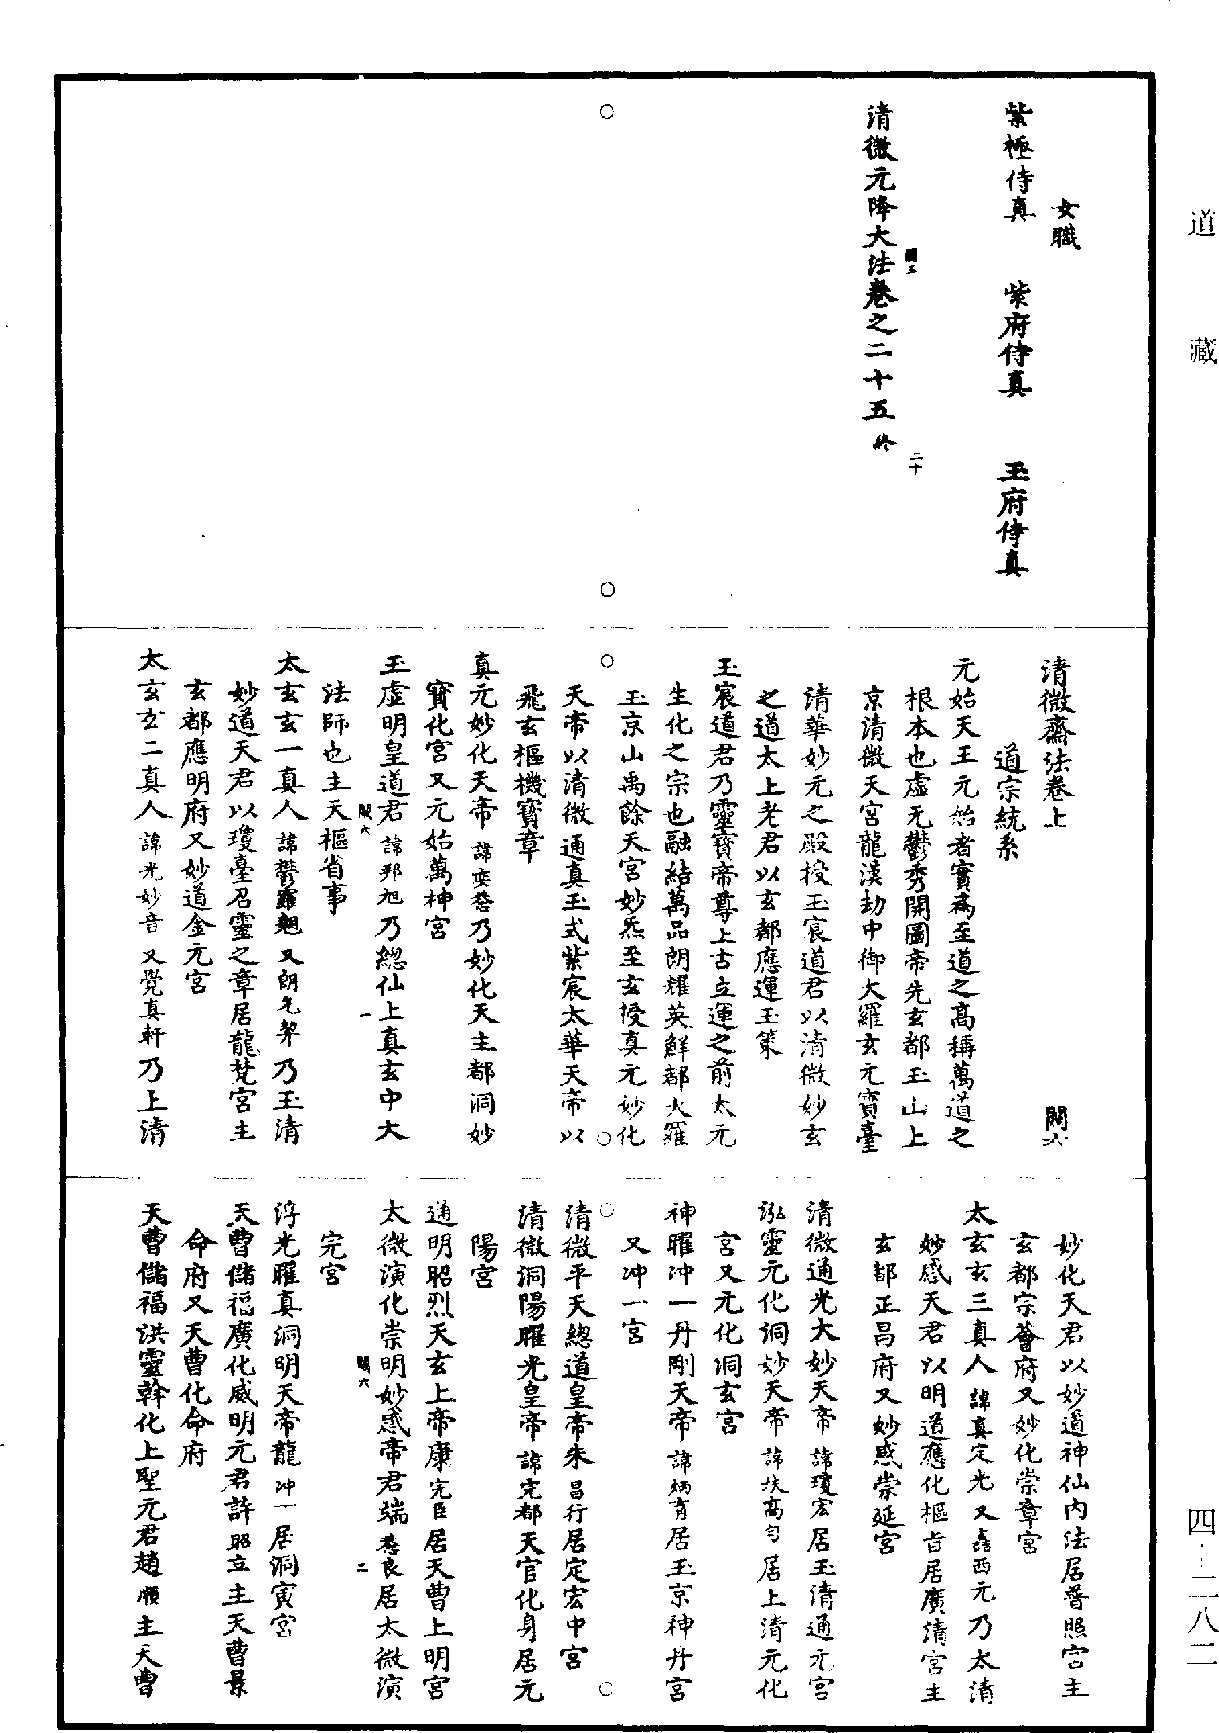 道藏
四・二八二
女職
紫極侍真　紫府侍真　玉府侍真
清微元降大法卷之二十五終
二十
清微齋法卷上
道宗統系
元始天王元始者實為至道之高稱萬道之
根本也虛无鬱秀開圖帝先玄都玉山上
京清微天宮龍漢劫中御大羅玄元寶臺
清華妙元之殿授玉宸道君以清微妙玄
之道太上老君以玄都應運玉策
玉宸道君乃靈寶帝尊上古立運之前太元
生化之宗也融結萬品朗耀英鮮都大羅
玉京山禹餘天宮妙炁至玄授真元妙化
天帝以清微通真玉式紫宸太華天帝以
飛玄樞機寶章
真元妙化天帝諱奕㤙乃妙化天主都洞妙
寶化宮又元始萬神宮
玉虛明皇道君諱邦旭乃總仙上真玄中大
法師也主天樞省事
太玄玄一真人諱鬱羅翹又朗光犖乃玉清
妙道天君以瓊臺召靈之章居龍梵宮主
玄都應明府又妙道金元宮
太玄玄二真人諱光妙音又覺真軒乃上清
妙化天君以妙道神仙內法居普照宮主
玄都宗薈府又妙化崇章宮
太玄玄三真人諱真定光又鑫西元乃太清
妙感天君以明道應化樞旨居廣清宮主
玄都正昌府又妙感崇延宮
清微通光大妙天帝諱瓊宏居玉清通元宮
泓靈元化洞妙天帝諱扶高勻居上清元化
宮又元化洞玄宮
神曜沖一丹剛天帝諱炳育居玉京神丹宮
又沖一宮
清微平天總道皇帝朱昌行居定宏中宮
清微洞陽曜光皇帝諱完都天官化身居元
陽宮
通明昭烈天玄上帝康完臣居天曹上明宮
太微演化崇明妙感帝君端㤙良居太微演
完宮
浮光曜真洞明天帝龍沖一居洞寅宮
天曹儲福廣化威明元君許昭立主天曹景
命府又天曹化命府
天曹儲福洪靈幹化上聖元君趙順主天曹